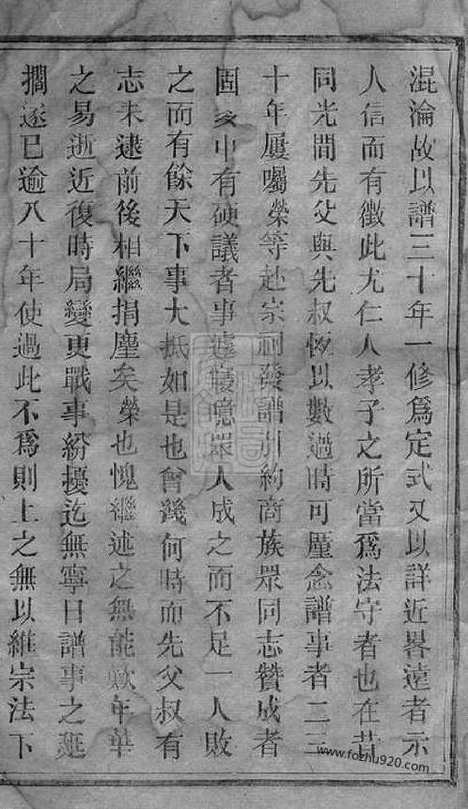 混淪故以譜三十年一修爲定式又以詳近畧遠者示
人信而有徵此尤仁人孝子之所當爲法守者也在昔
同光間先父與先叔恢以數過時可厪念譜事者二三
十年屢囑榮等赴宗祠發譜引約商族眾同志贊成者
固亥中有硬議者事遽寢噫眾人成之而不足一人敗
之而有餘天下事大抵如是也曾幾何時而先父叔有
志未逮前後相繼捐塵矣榮也愧繼述之無能歎年華
之易逝近復時局變更戰事紛擾迄無寧日譜事之延
擱遂已逾八十年使過此不爲則上之無以維宗法下
www.fozhu920.com